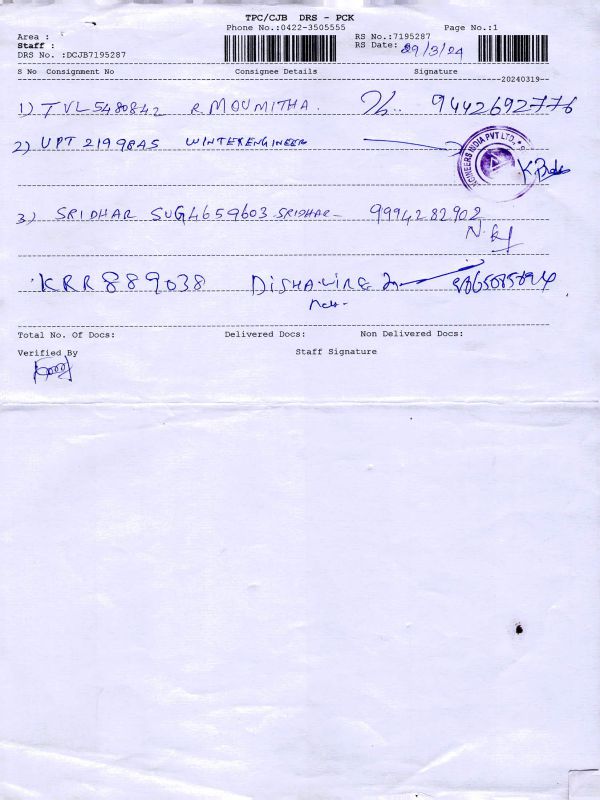 TPC/CJB DRS - PCK
Phone No.:0422-3505555 Page No.:1
Area :
Staff :
DRS No. :DCJB7195287
RS No.:7195287
RS Date: 29/3/24
S No Consignment No Consignee Details Signature
20240319
1) TVL5480842 R.MOUMITHA. 9442692776
2) UPT 2199845 WINTEX ENGINEER
ENGINEERS INDIA PVT LTD.,
3) SRIDHAR SUG4659603 SRIDHAR 9994282902
KRR889038
Total No. Of Docs: Delivered Docs: Non Delivered Docs:
Verified By Staff Signature